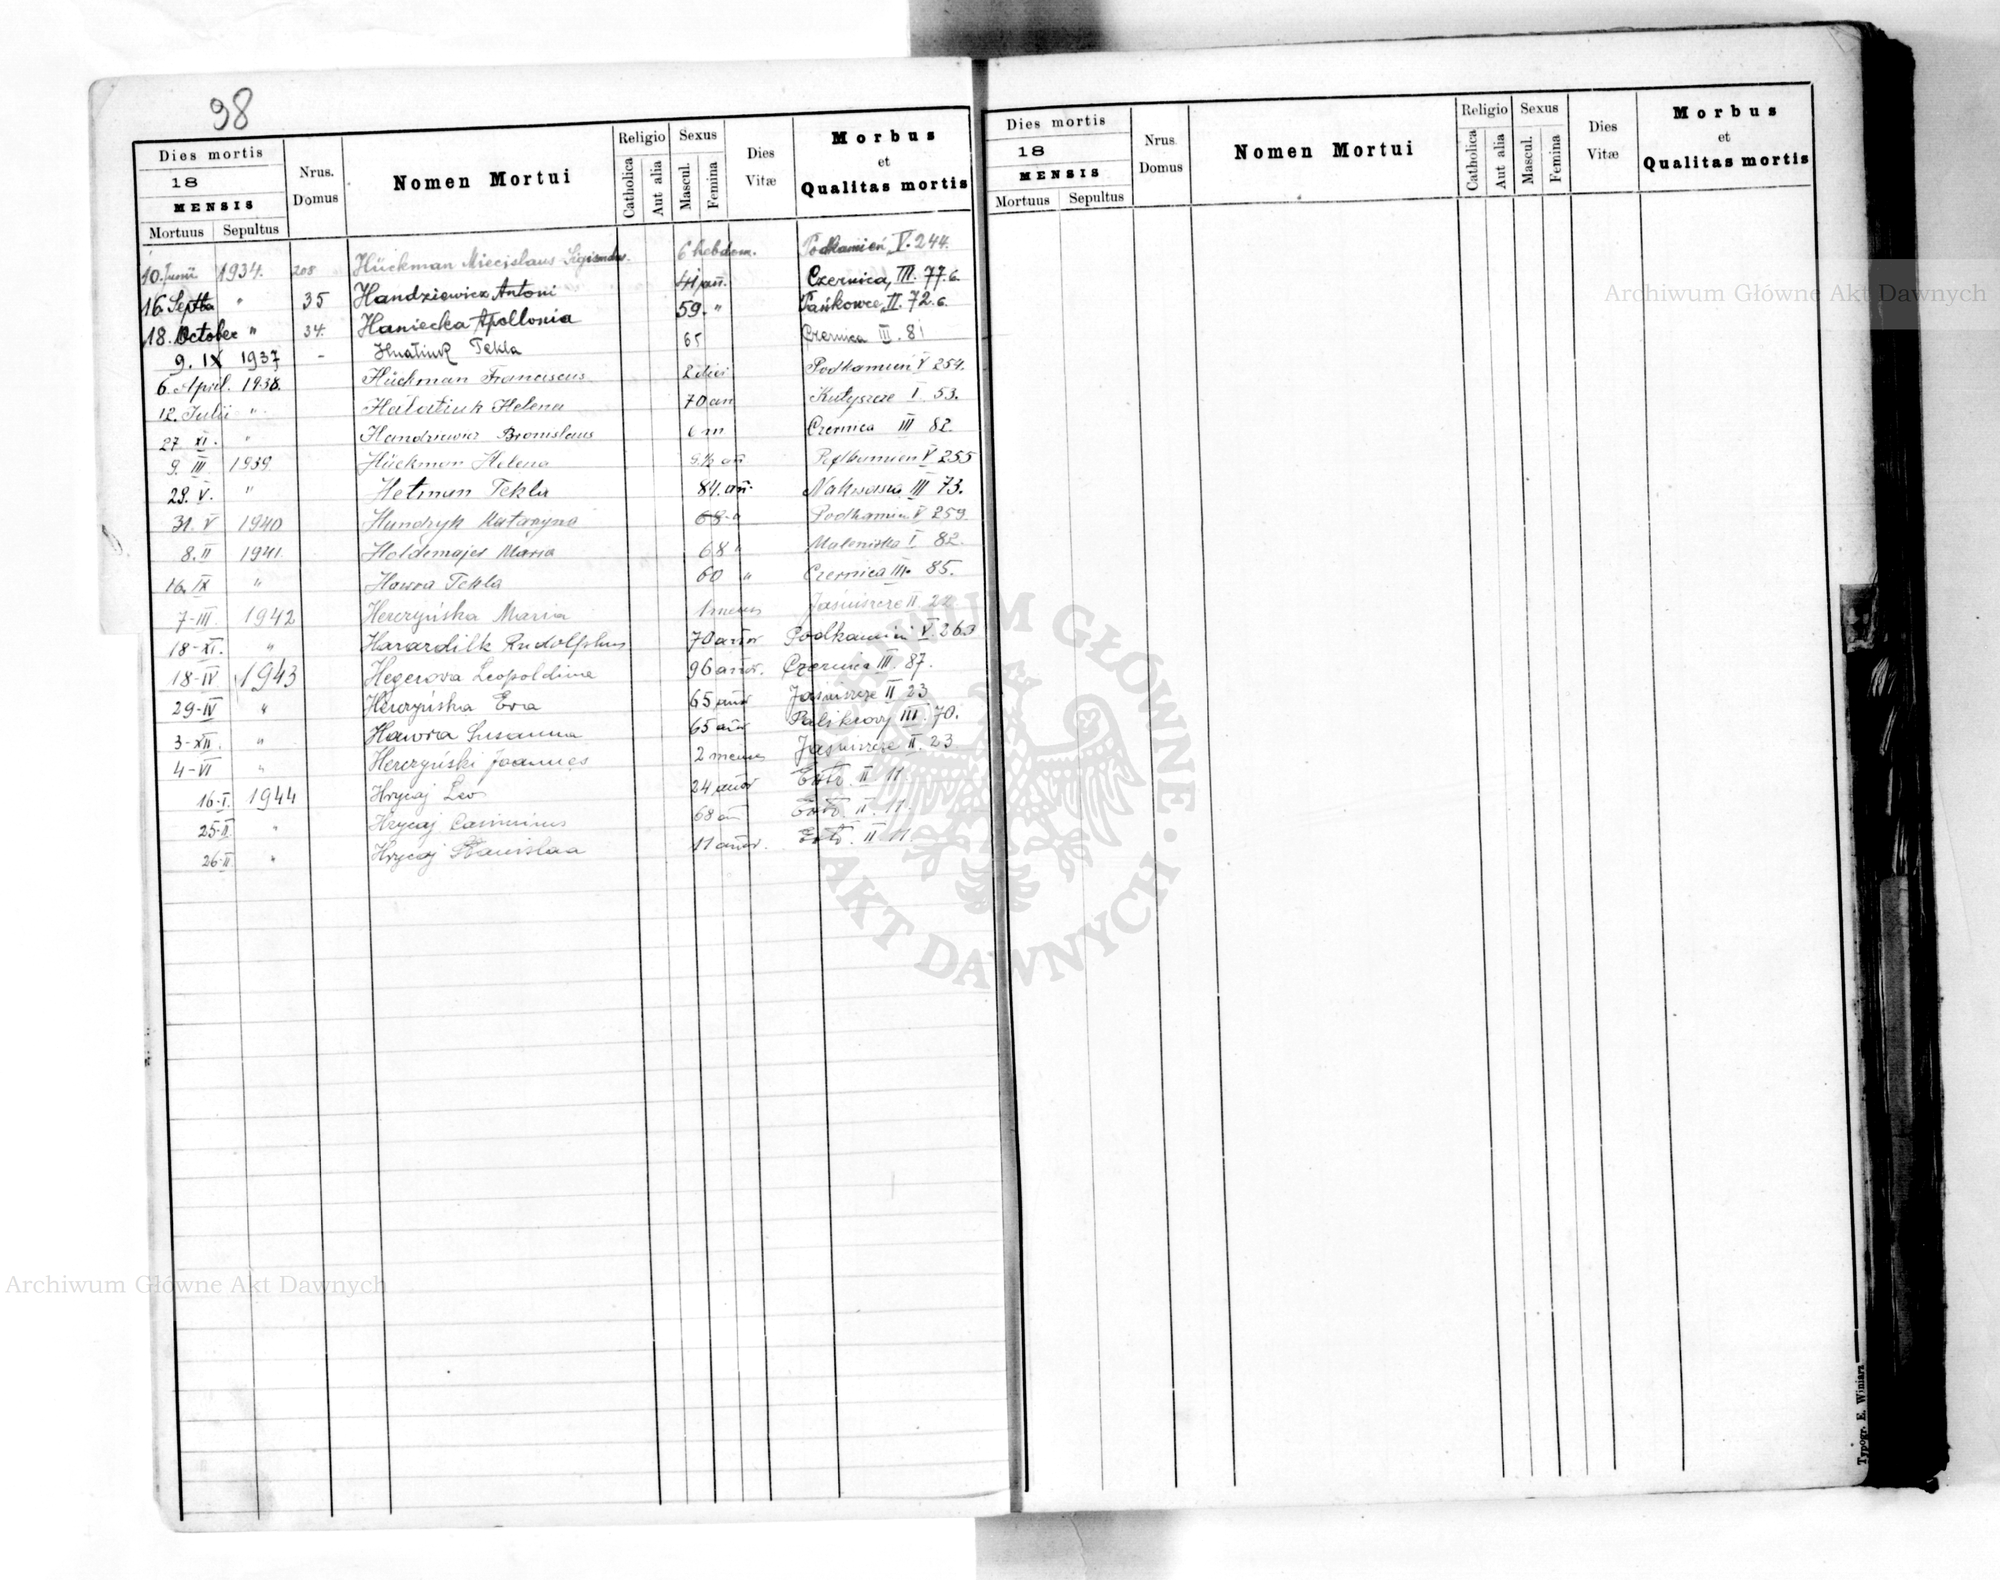 98
Dies mortis
18
MENSIS
Mortuus Sepultus
Nrus. Domus
Nomen Mortui
Religio
Catholica
Aut alia
Sexus
Mascul.
Femina
Dies Vitæ
Morbus et Qualitas mortis
10. Junii 1934. 208 Hückman Miecislaus Sigismdus. 6 hebdom. Podkamień V. 244.
16. Septba " 35 Handziewicz Antoni 41 an. Czernica, III. 77.6.
18. October " 34. Haniecka Apollonia 59. " Pańkowce, II. 72.6.
9. IX 1937 - Hnatiuk Tekla 65 Czernica III. 81
6. April. 1938. Hückman Franciscus 2 diei Podkamień V 254.
12. Julii " Helena 70 an Kutyszcze I. 53.
27. XI. " Bronislaus 6 m Czernica III 82.
9. III 1939 Hückman Helena an Podkamień V 255
29. V. " Hetman Tekla 84. an. Nakwasza III 73.
31. V 1940 Handzyk Katarzyna 68 " Podkamień V 259.
8. II 1941. Holdmajer Maria 68 " Maleniska I 82.
16. IX " Hawra Tekla 60 " Czernica III. 85.
7-III. 1942 Herczyńska Maria 1 mensis Jaśniszcze II. 22
18-XI. " Rudolphus 70 annor Podkamień V. 263
18-IV 1943 Hegerova Leopoldina 96 annor. Czernica III. 87.
29-IV " Herczyńska Eva 65 annor Jaśniszcze II 23
3-XII. " Hawra Susanna 65 annor Palikrovy III. 70.
4-VI " Herczyński Joannes 2 menses Jaśniszcze II. 23
16-I. 1944 Hrycaj Leo 24 annor II 11
25-II. " Hrycaj Casimirus 68 an II. 11.
26-II " Hrycaj Stanislaa 11 annor. II 11.
Dies mortis
18
MENSIS
Mortuus Sepultus
Nrus. Domus
Nomen Mortui
Religio
Catholica
Aut alia
Sexus
Mascul.
Femina
Dies Vitæ
Morbus et Qualitas mortis
Typogr. E. Winiarz
Archiwum Główne Akt Dawnych
Archiwum Główne Akt Dawnych
ARCHIWUM GŁÓWNE · AKT DAWNYCH ·